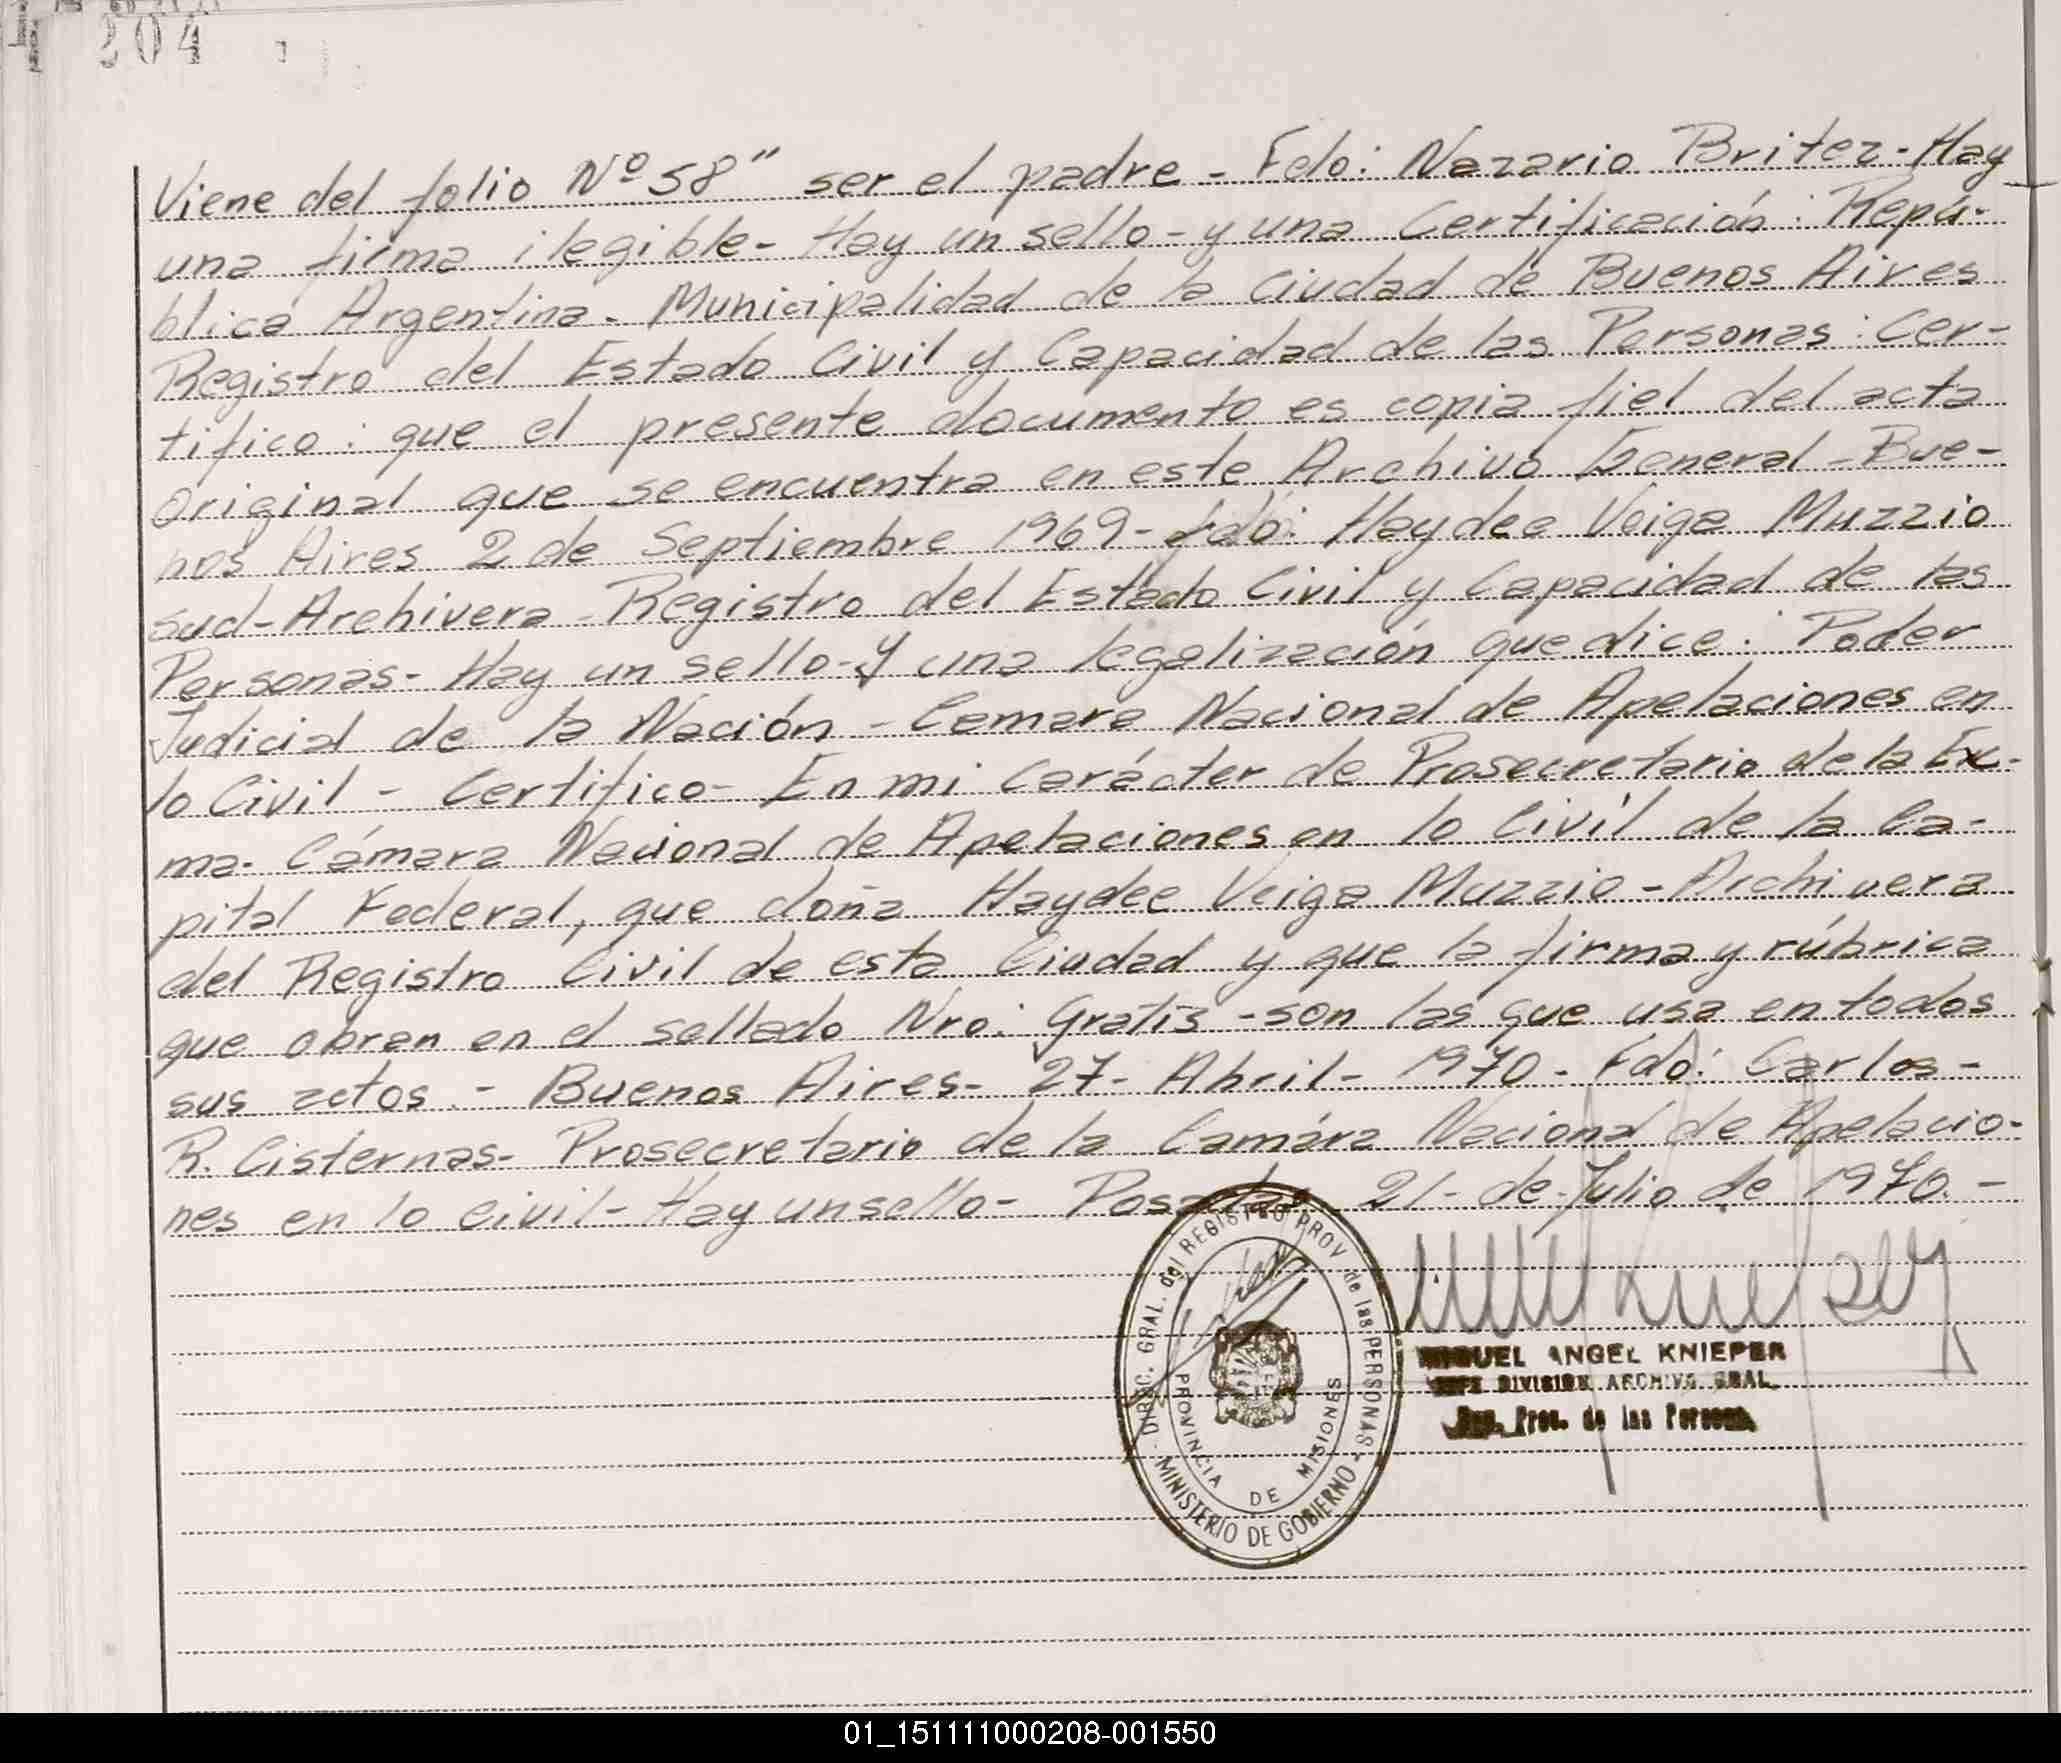 204
Viene del folio Nº 58" ser el padre - Fdo: Nazario Britez - Hay
una firma ilegible - Hay un sello - y una Certificación: Repú-
blica Argentina - Municipalidad de la Ciudad de Buenos Aires
Registro del Estado Civil y Capacidad de las Personas: Cer-
tifico: que el presente documento es copia fiel del acta
original que se encuentra en este Archivo General - Bue-
nos Aires 2 de Septiembre 1969 - fdo: Haydee Veiga Muzzio
sud-Archivera - Registro del Estado Civil y Capacidad de las
Personas - Hay un sello - y una legalización que dice: Poder
Judicial de la Nación - Camara Nacional de Apelaciones en
lo Civil - Certifico - En mi carácter de Prosecretario de la Ex-
ma. Cámara Nacional de Apelaciones en lo Civil de la Ca-
pital Federal, que doña Haydee Veiga Muzzio - Archivera
del Registro Civil de esta Ciudad y que la firma y rúbrica
que obran en el sellado Nro: Gratis - son las que usa en todos
sus actos - Buenos Aires - 27 - Abril - 1970 - Fdo: Carlos -
R. Cisternas - Prosecretario de la Camára Nacional de Apelacio-
nes en lo civil - Hay un sello - Posadas 21 - de Julio de 1970. -
DIREC. GRAL. del REGISTRO PROV. de las PERSONAS
PROVINCIA DE MISIONES
MINISTERIO DE GOBIERNO
MIGUEL ANGEL KNIEPER
JEFE DIVISION ARCHIVO GRAL.
Reg. Prov. de las Personas
01_151111000208-001550